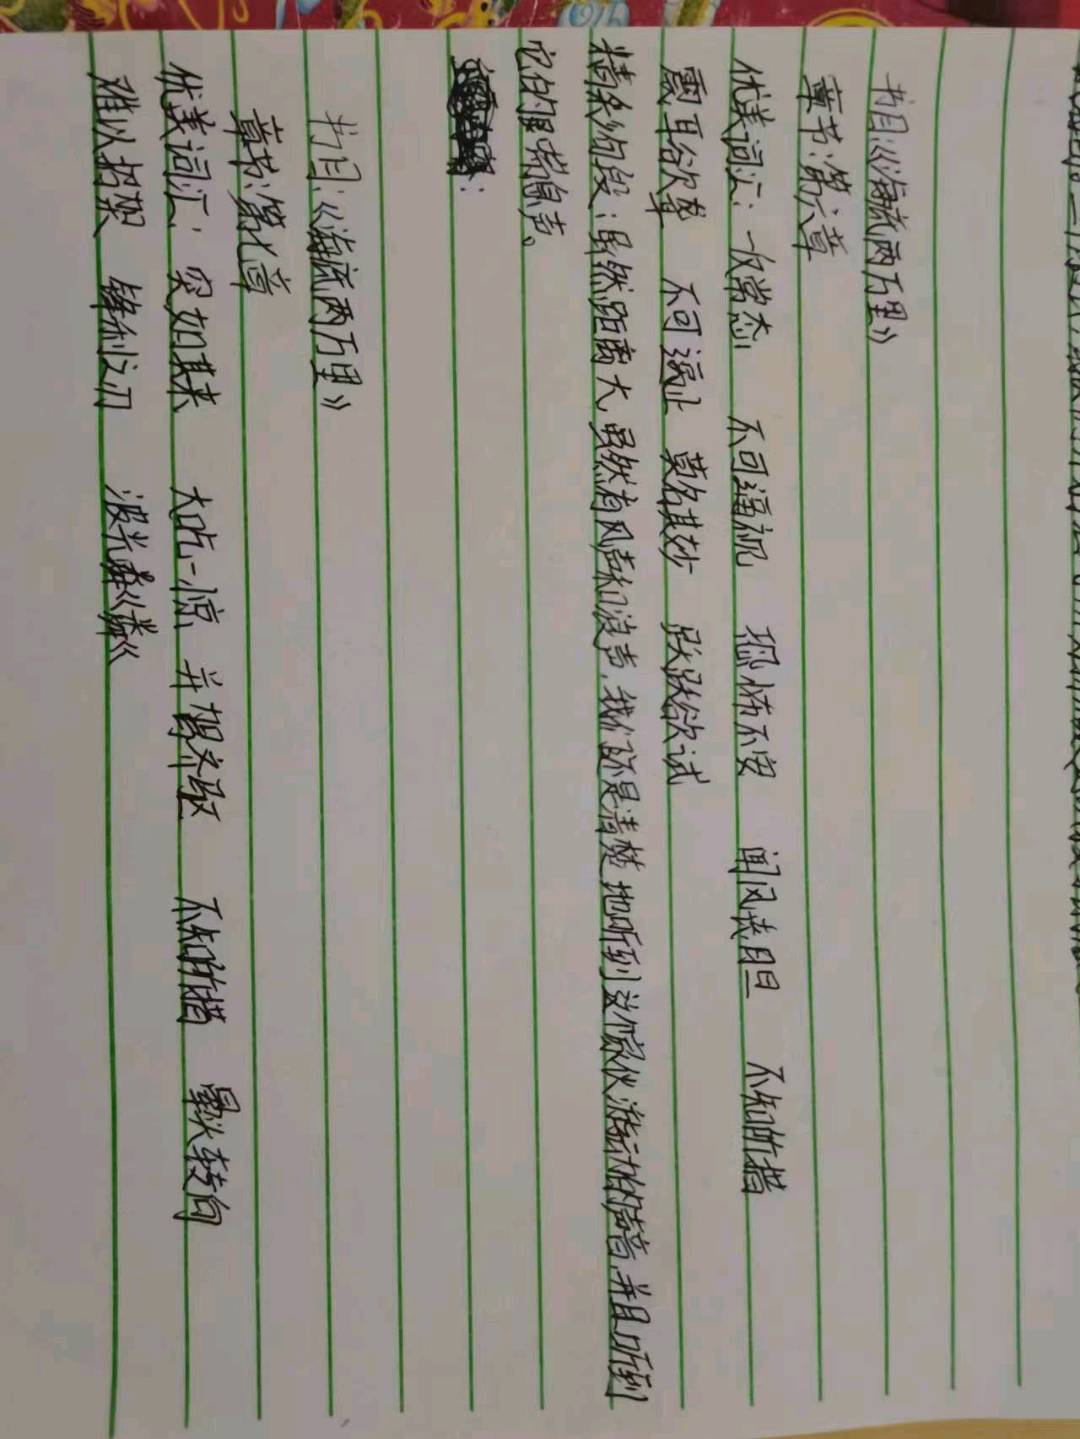 书目:《海底两万里》
章节:第六章
优美词汇: 一反常态 不可逼视 恐怖不安 闻风丧胆 不知所措
震耳欲聋 不可遏止 莫名其妙 跃跃欲试
精彩句段:虽然距离大,虽然有风声和波声,我们还是清楚地听到这家伙游动的声音,并且听到
它的喘息声。
书目:《海底两万里》
章节:第七章
优美词汇: 突如其来 大吃一惊 并驾齐驱 不知所措 晕头转向
难以招架 锋利之刃 波光粼粼